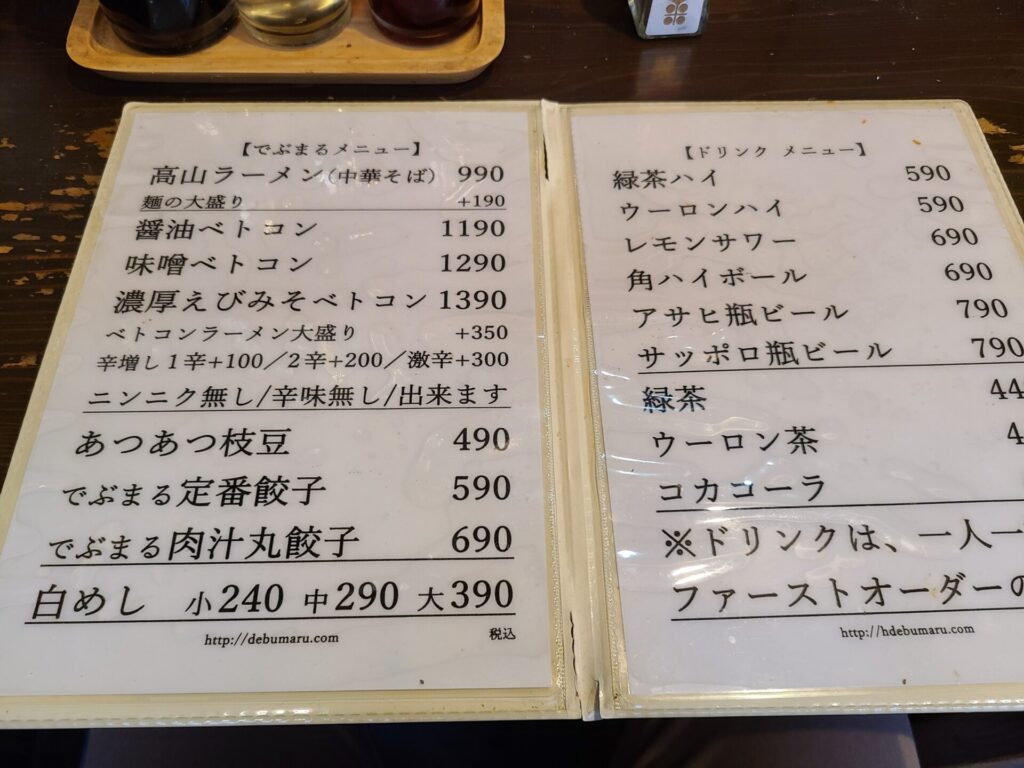 【でぶまるメニュー】
高山ラーメン(中華そば) 990
麺の大盛り +190
醤油ベトコン 1190
味噌ベトコン 1290
濃厚えびみそベトコン 1390
ベトコンラーメン大盛り +350
辛増し1辛+100/2辛+200/激辛+300
ニンニク無し/辛味無し/出来ます
あつあつ枝豆 490
でぶまる定番餃子 590
でぶまる肉汁丸餃子 690
白めし 小240 中290 大390
http://debumaru.com 税込
【ドリンク メニュー】
緑茶ハイ 590
ウーロンハイ 590
レモンサワー 690
角ハイボール 690
アサヒ瓶ビール 790
サッポロ瓶ビール 790
緑茶 44
ウーロン茶 4
コカコーラ
※ドリンクは、一人一
ファーストオーダーの
http://hdebumaru.com